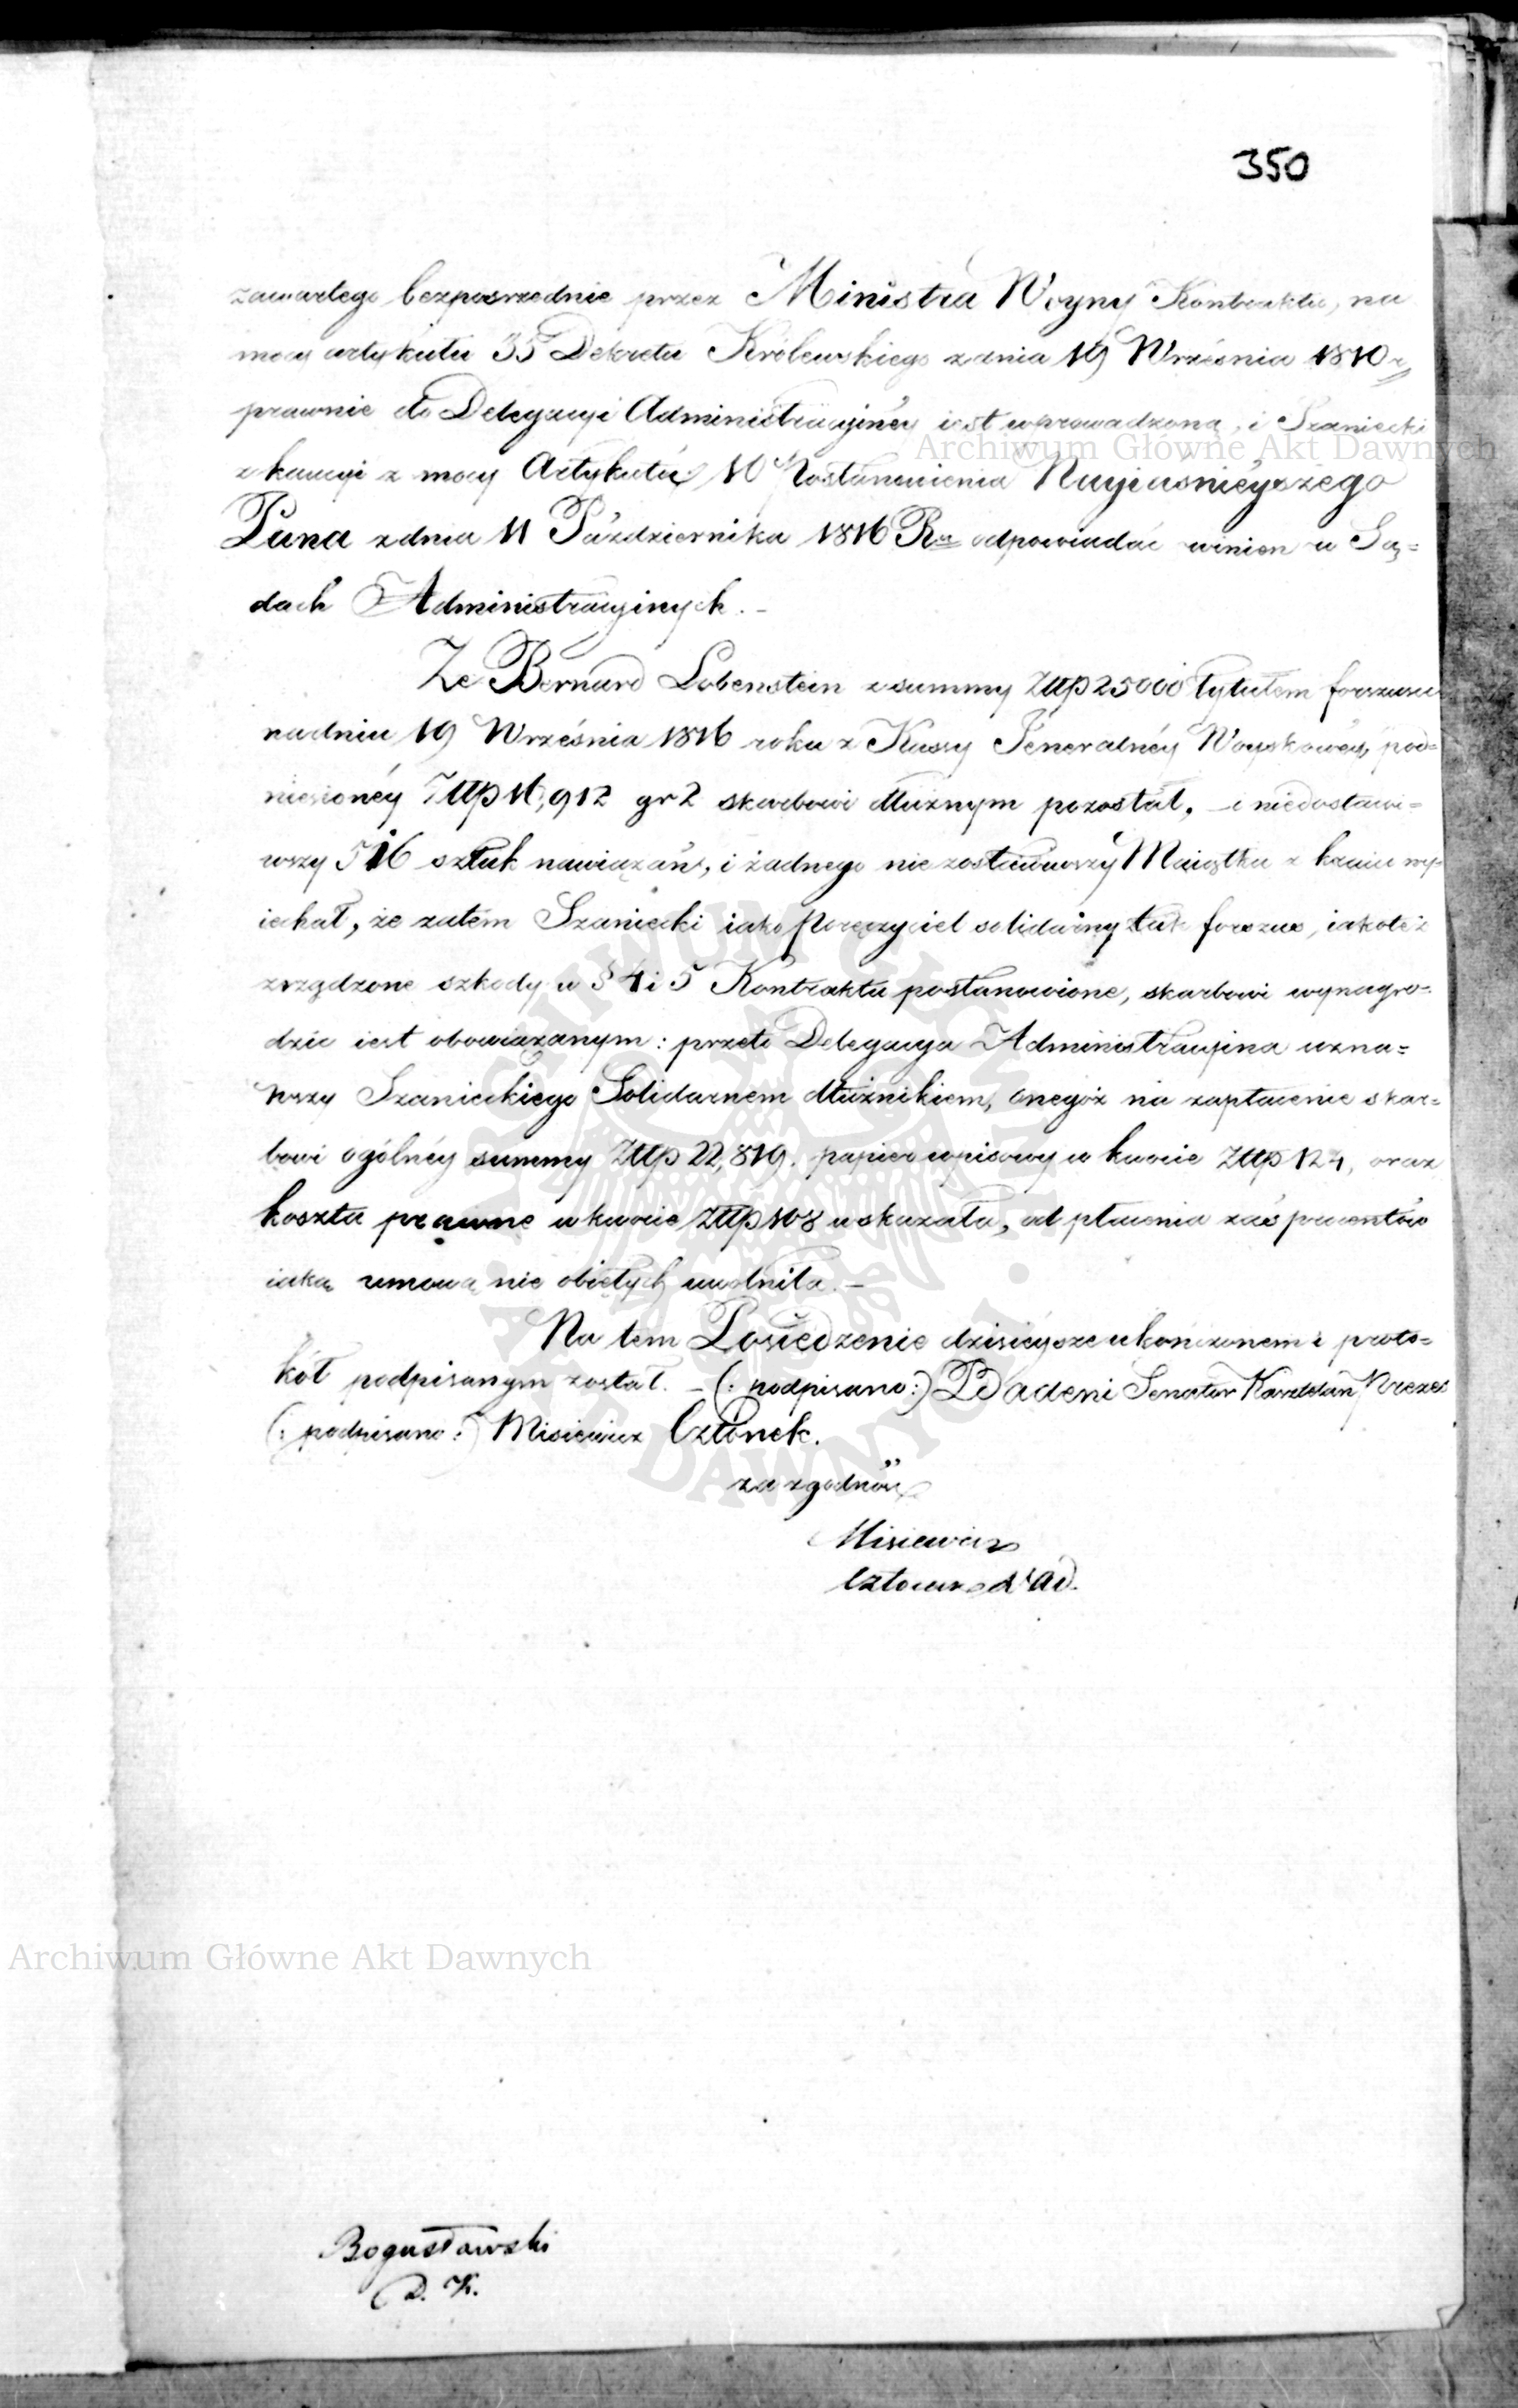 350
zawartego bezpośrzednie przez Ministra Woyny Kontraktu, na
mocy artykułu 35 Dekretu Królewskiego z dnia 19 Września 1810 r
prawnie do Delegacyi Administracyinéy iest wprowadzoną, i Szaniecki
z kaucyi z mocy Artykułu 10 Postanowienia Nayiaśnieyszego
Pana z dnia 11 Października 1816 Ru odpowiadać winien w Są=
dach Administracyinych. –
Że Bernard Lobenstein z summy Złłp 25000 tytułem forszusu
na dniu 19 Września 1816 roku z Kassy Jeneralnéy Woyskowéy, pod=
niesionéy Złłp 16,912 gr 2 skarbowi dłużnym pozostał, – i niedostawi=
wszy 516 sztuk nawiązań, i żadnego nie zostawiwszy Maiątku z kraiu wy=
iechał, że zatém Szaniecki iako Poręczyciel solidarny tak forszus, iakoteż
zrządzone szkody w § 4 i 5 Kontraktu postanowione, skarbowi wynagro=
dzić iest obowiązanym: przeto Delegacya Administracyina uzna=
wszy Szanieckiego Solidarnem dłużnikiem, onegoż na zapłacenie skar=
bowi ogólnéy summy Złłp 22,819. papier wpisowy w kwocie Złłp 124, oraz
koszta prawne w kwocie Złłp 108 wskazała, od płacenia zaś procentów
iako umową nie obiętych uwolniła. –
Na tem Posiedzenie dzisieysze ukończonem i proto=
kół podpisanym został. – (: podpisano:) Badeni Senator Kasztelan Prezes
(: podpisano:) Misiewicz Członek.
za zgodność
Misiewicz
Członek d Ad.
Bogusławski
D. K.
Archiwum Główne Akt Dawnych
Archiwum Główne Akt Dawnych
ARCHIWUM GŁÓWNE AKT DAWNYCH